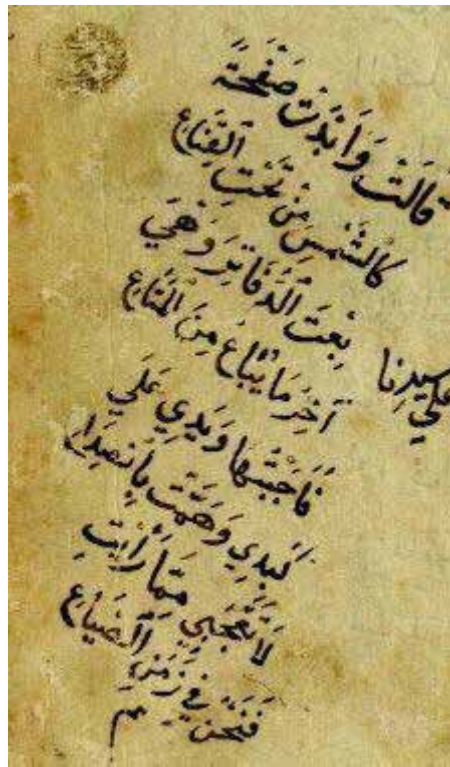 قَالَتْ وَأَبْدَتْ صَفْحَةً
كَالشَّمْسِ مِنْ تَحْتِ الْقِنَاعِ
بِعْتَ الدَّفَاتِرَ وَهْيَ
آخِرُ مَا يُبَاعُ مِنَ الْمَتَاعِ
فَأَجَبْتُهَا وَيَدِي عَلَى
كَبِدِي وَهَمَّتْ بِانْصِدَاعِ
لَا تَعْجَبِي مِمَّا رَأَيْتِ
فَنَحْنُ فِي زَمَنِ الضَّيَاعِ
سيدنا